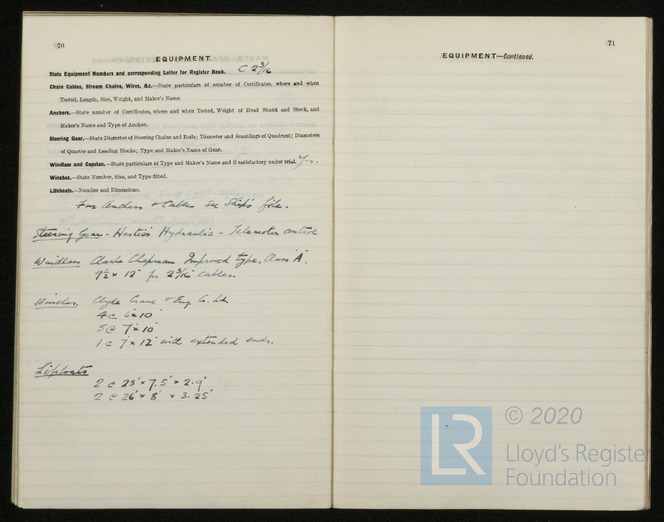 70
EQUIPMENT.
State Equipment Numbers and corresponding Letter for Register Book. C 2 3/16
Chain Cables, Stream Chains, Wires, &c.—State particulars of number of Certificates, where and when
Tested, Length, Size, Weight, and Maker's Name.
Anchors.—State number of Certificates, where and when Tested, Weight of Head Shank and Stock, and
Maker's Name and Type of Anchor.
Steering Gear.—State Diameter of Steering Chains and Rods; Diameter and Scantlings of Quadrant; Diameters
of Quarter and Leading Blocks; Type and Maker's Name of Gear.
Windlass and Capstan.—State particulars of Type and Maker's Name and if satisfactory under trial. Yes.
Winches.—State Number, Size, and Type fitted.
Lifeboats.—Number and Dimensions.
For Anchors & Cables see Ship's file.
Steering Gear - Hastie's Hydraulic - Telemotor control
Windlass Clarke Chapman Improved type. Class "A".
9½ × 12" for 2 3/16" cables.
Winches, Clyde Crane & Eng. Co. Ld.
4 @ 6" × 10"
5 @ 7" × 10"
1 @ 7" × 12" with extended ends.
Lifeboats
2 @ 23' × 7.5' × 2.9'
2 @ 26' × 8' × 3.25'
71
EQUIPMENT—Continued.
LR
© 2020
Lloyd's Register
Foundation